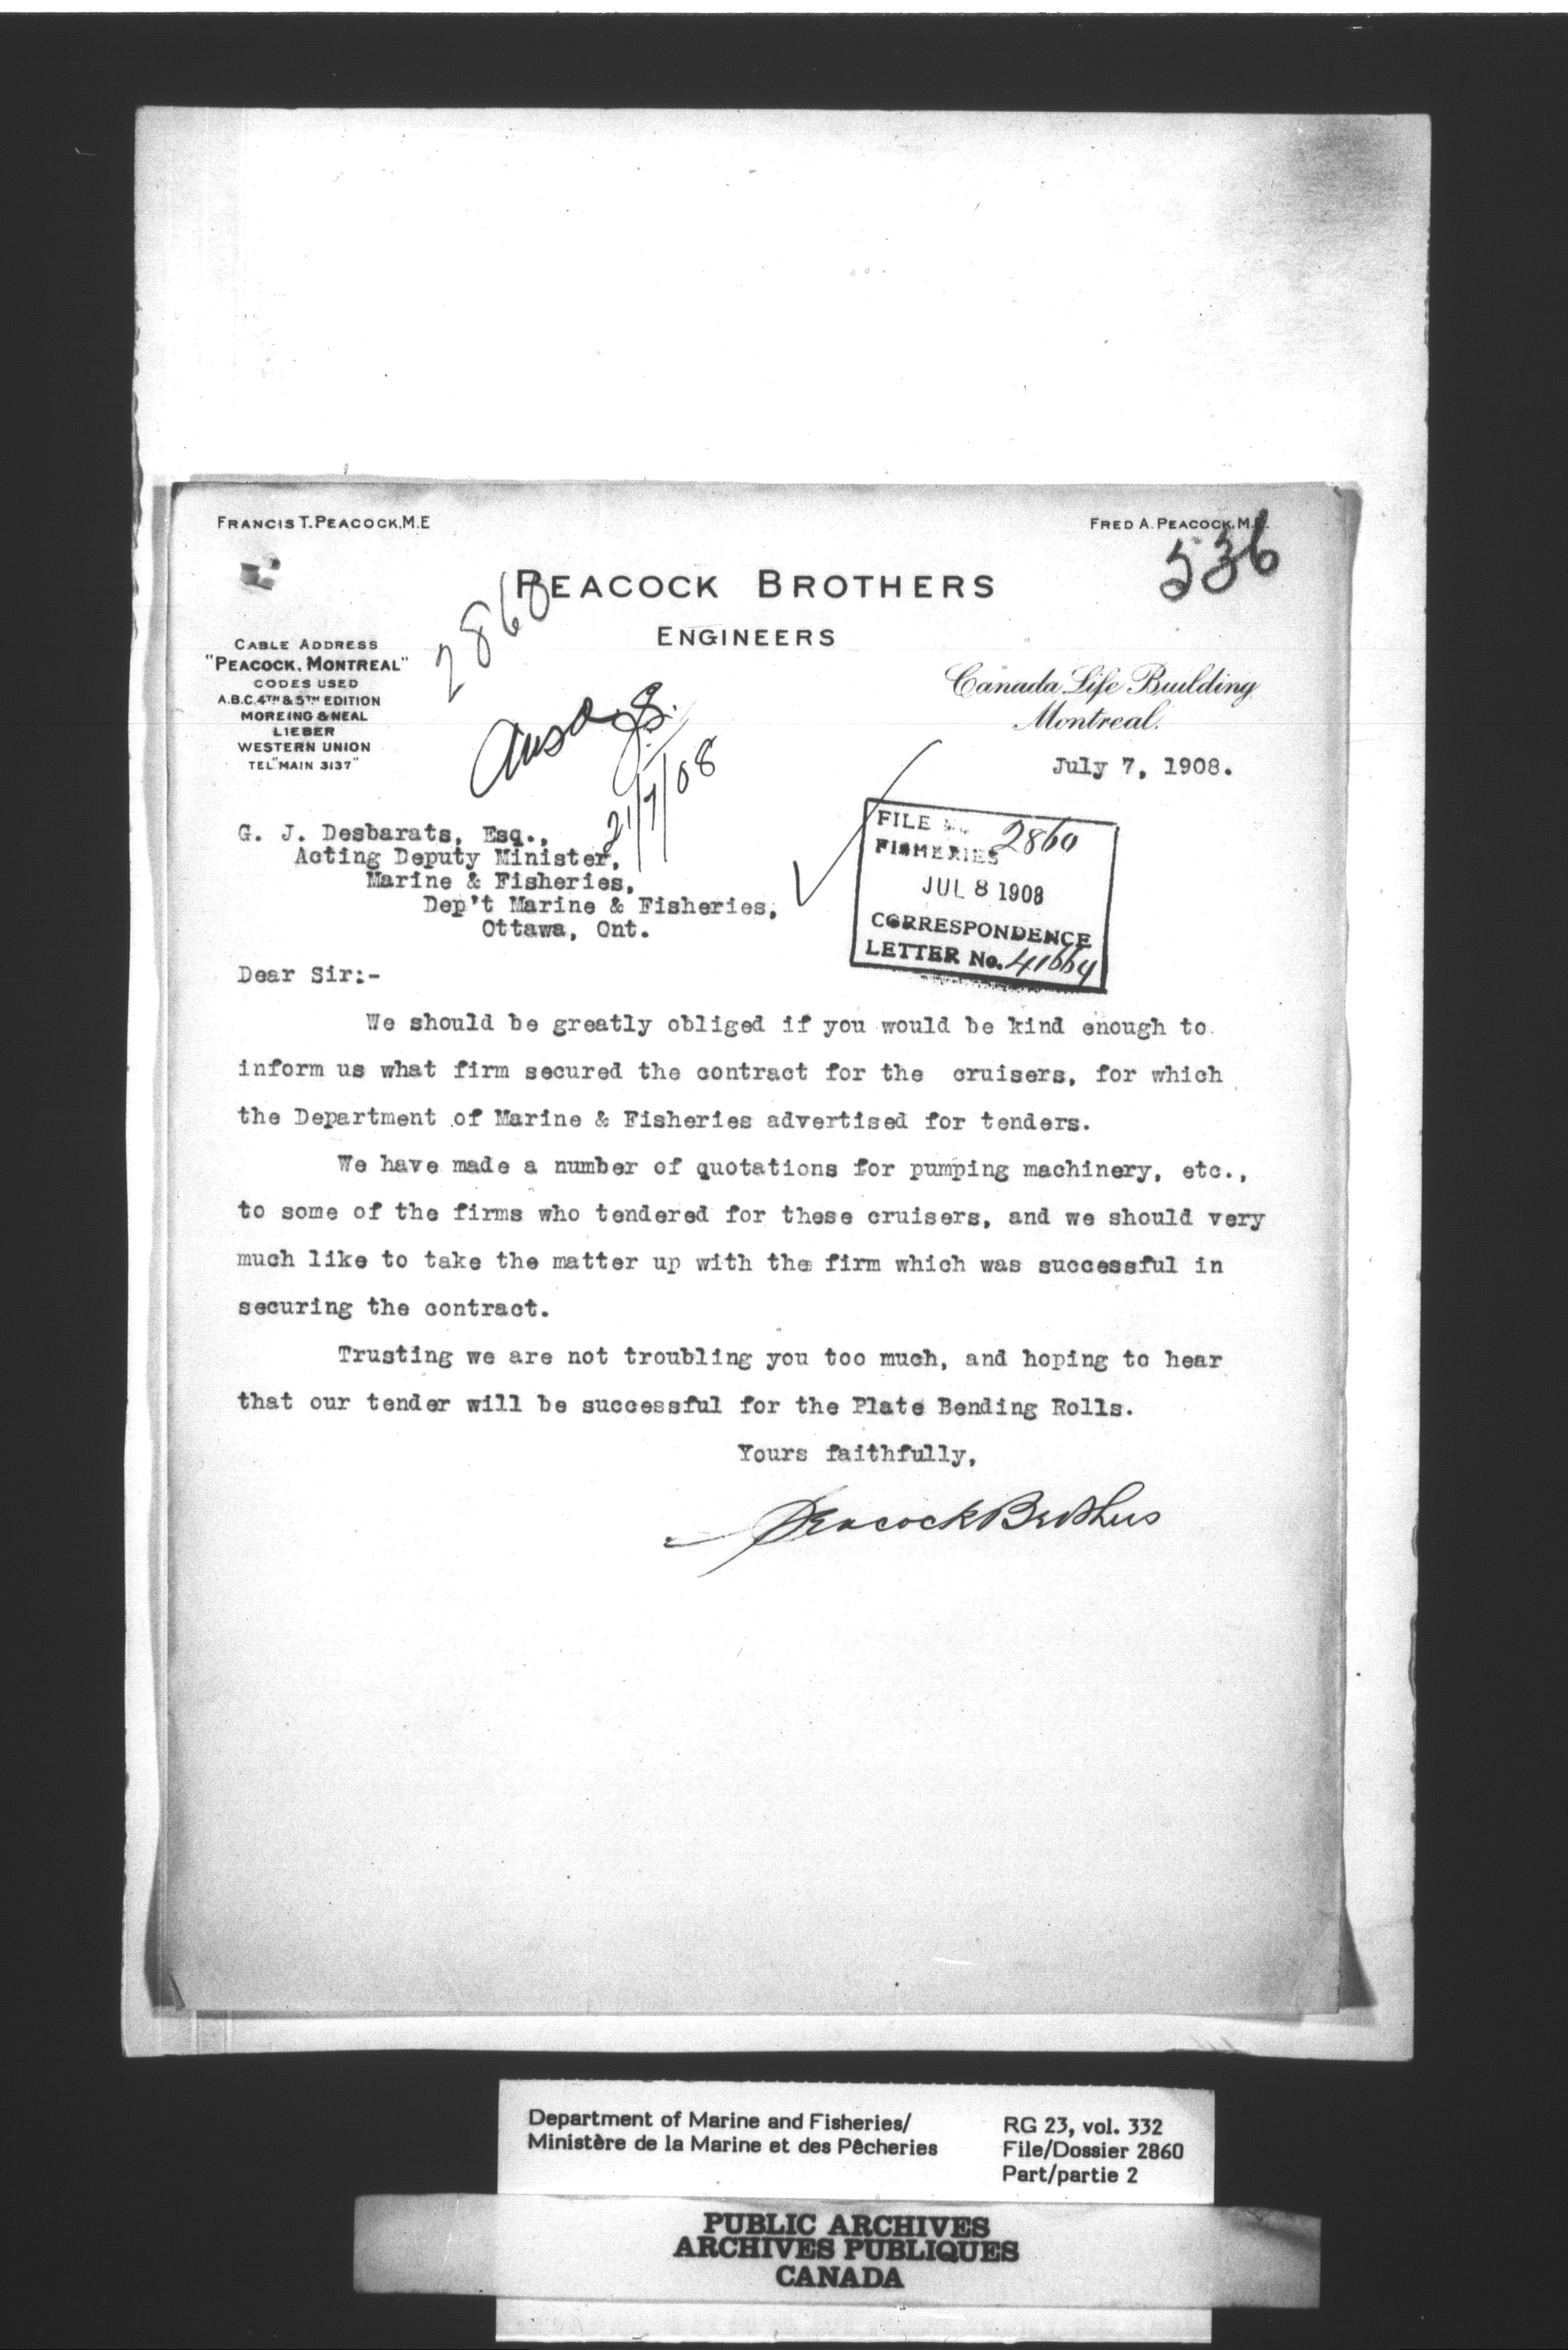 FRANCIS T. PEACOCK, M.E
FRED A. PEACOCK, M.E.
536
PEACOCK BROTHERS
ENGINEERS
2860
CABLE ADDRESS
"PEACOCK, MONTREAL"
CODES USED
A.B.C. 4TH & 5TH EDITION
MOREING & NEAL
LIEBER
WESTERN UNION
TEL "MAIN 3137"
Canada Life Building
Montreal.
July 7, 1908.
G. J. Desbarats, Esq.,
Acting Deputy Minister,
Marine & Fisheries,
Dep't Marine & Fisheries,
Ottawa, Ont.
FILE No. 2860
FISHERIES
JUL 8 1908
CORRESPONDENCE
LETTER No. 41664
Dear Sir:-
We should be greatly obliged if you would be kind enough to
inform us what firm secured the contract for the cruisers, for which
the Department of Marine & Fisheries advertised for tenders.
We have made a number of quotations for pumping machinery, etc.,
to some of the firms who tendered for these cruisers, and we should very
much like to take the matter up with the firm which was successful in
securing the contract.
Trusting we are not troubling you too much, and hoping to hear
that our tender will be successful for the Plate Bending Rolls.
Yours faithfully,
Peacock Brothers
Department of Marine and Fisheries/
Ministère de la Marine et des Pêcheries
RG 23, vol. 332
File/Dossier 2860
Part/partie 2
PUBLIC ARCHIVES
ARCHIVES PUBLIQUES
CANADA